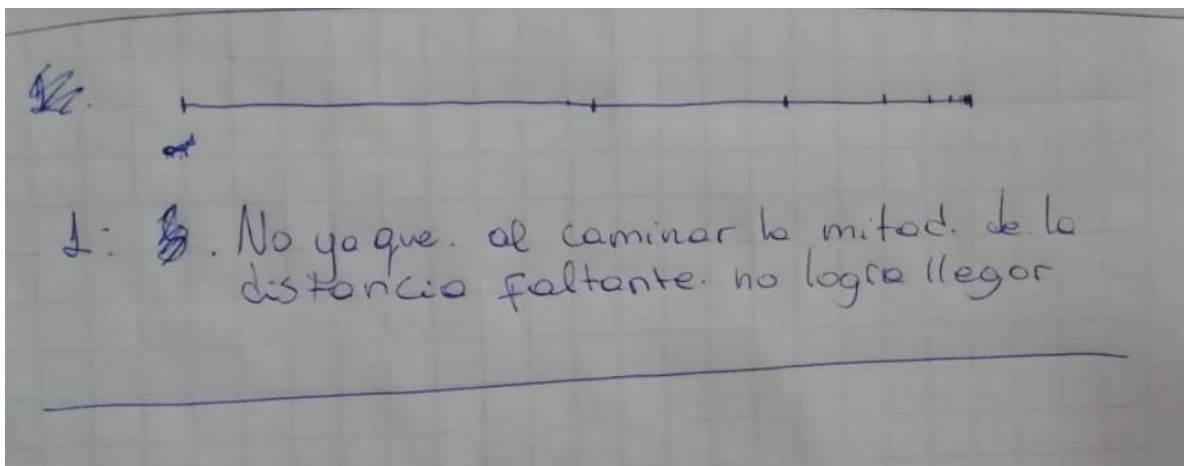 1: No ya que. al caminar la mitad. de la
distancia faltante. no logra llegar